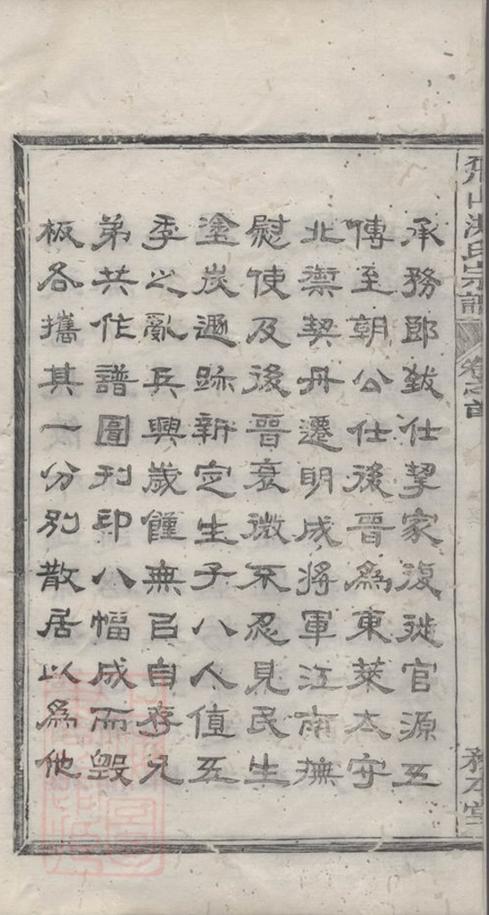 承務郎致仕挈家復徙官源五
傳至朝公仕後晉為東萊太守
北禦契丹遷明成將軍江南撫
慰使及後晉衰微不忍見民生
塗炭遯跡新定生子八人值五
季之亂兵興歲饉無己自存兄
弟共作譜圖刊印八幅成而毀
板各攜其一分別散居以為他
山洪氏宗譜
卷之首